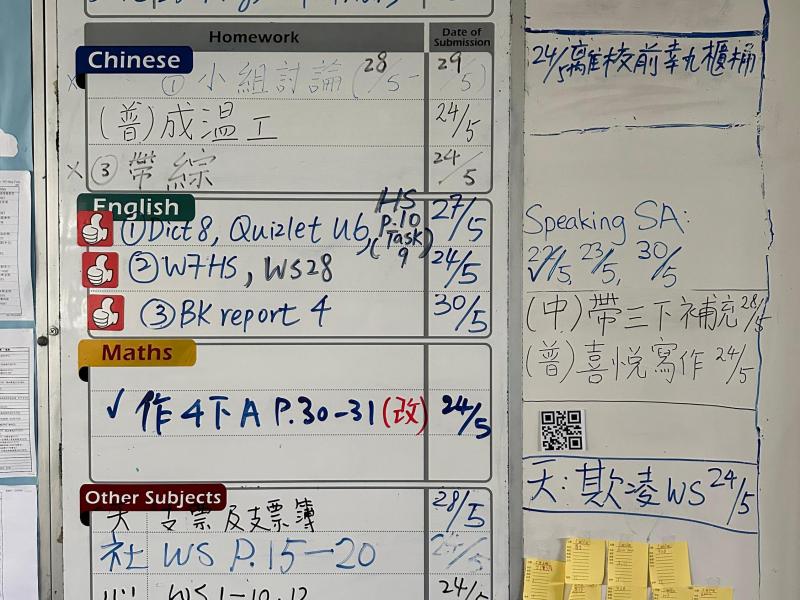 Homework
Date of Submission
Chinese
① 小組討論 (28/5-
29/5)
(普)成溫工
24/5
③ 帶綜
24/5
English
①Dict 8, Quizlet U6, HS P.10 (Task 9)
27/5
②W7HS, WS28
24/5
③BK report 4
30/5
Maths
✓ 作4下A P.30-31(改)
24/5
Other Subjects
支票及支票簿
28/5
社 WS P.15-20
24/5
WS 1-10, 12
24/5
24/5離校前幸丸櫃桶
Speaking SA:
22/5, 23/5, 30/5
(中)帶三下補充28/5
(普)喜悅寫作 24/5
天:欺凌WS 24/5